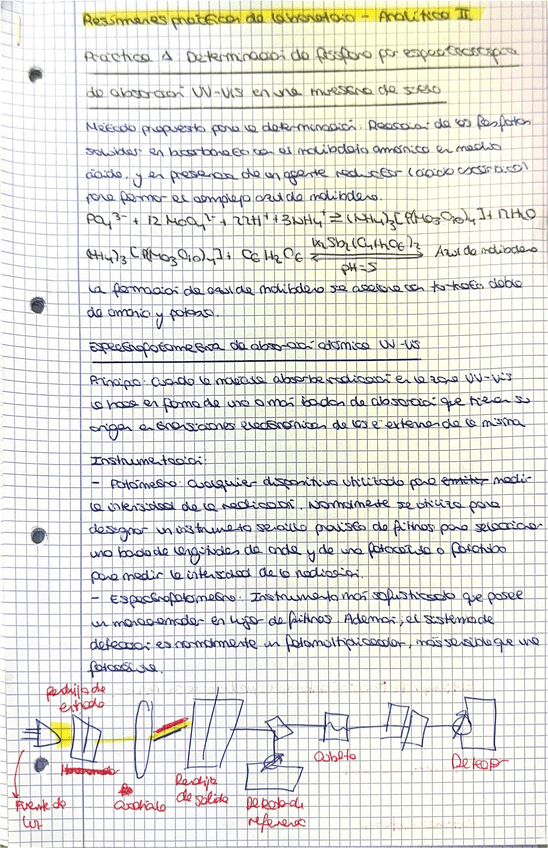 Resúmenes prácticas de laboratorio - Analítica II
Práctica 1 Determinación de fósforo por espectroscopia
de absorción UV-Vis en una muestra de suelo
Método propuesto para la determinación: Reacción de los fosfatos
solubles en bicarbonato con el molibdato amónico en medio
ácido, y en presencia de un agente reductor (ácido ascórbico)
para formar el complejo azul de molibdeno.
PO₄³⁻ + 12 MoO₄²⁻ + 27H⁺ + 3NH₄⁺ ⇌ (NH₄)₃[P(Mo₃O₁₀)₄] + 12H₂O
(NH₄)₃[P(Mo₃O₁₀)₄] + C₆H₂O₆ K₂Sb₂(C₄H₂O₆)₂ pH=5 Azul de molibdeno
La formación de azul de molibdeno se acelera con tartrato doble
de amonio y potasio.
Espectrofotometría de absorción atómica UV-Vis
Principio: Cuando la molécula absorbe radiación en la zona UV-Vis
lo hace en forma de una o más bandas de absorción que tienen su
origen en transiciones electrónicas de los e⁻ externos de la misma
Instrumentación:
- Fotómetro: Cualquier dispositivo utilizado para emitir medir
la intensidad de la radiación. Normalmente se utiliza para
designar un instrumento sencillo provisto de filtros para seleccionar
una banda de longitudes de onda y de una fotocélula o fototubo
para medir la intensidad de la radiación.
- Espectrofotómetro: Instrumento más sofisticado que posee
un monocromador en lugar de filtros. Además, el sistema de
detección es normalmente un fotomultiplicador, más sensible que una
fotocélula.
Rendija de
entrada
Fuente de
luz
Rendija
de salida
Detector de
referencia
Cubeta
Detector